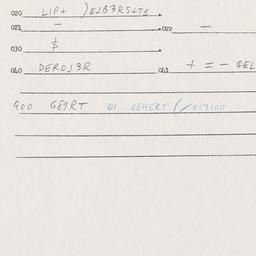 020 LIP+ )EJB3RS+T1
021 — 022 —
030 $
040 DEROJ3R 041 + = - QEL
900 G81RT 01 GEHERT (/017100